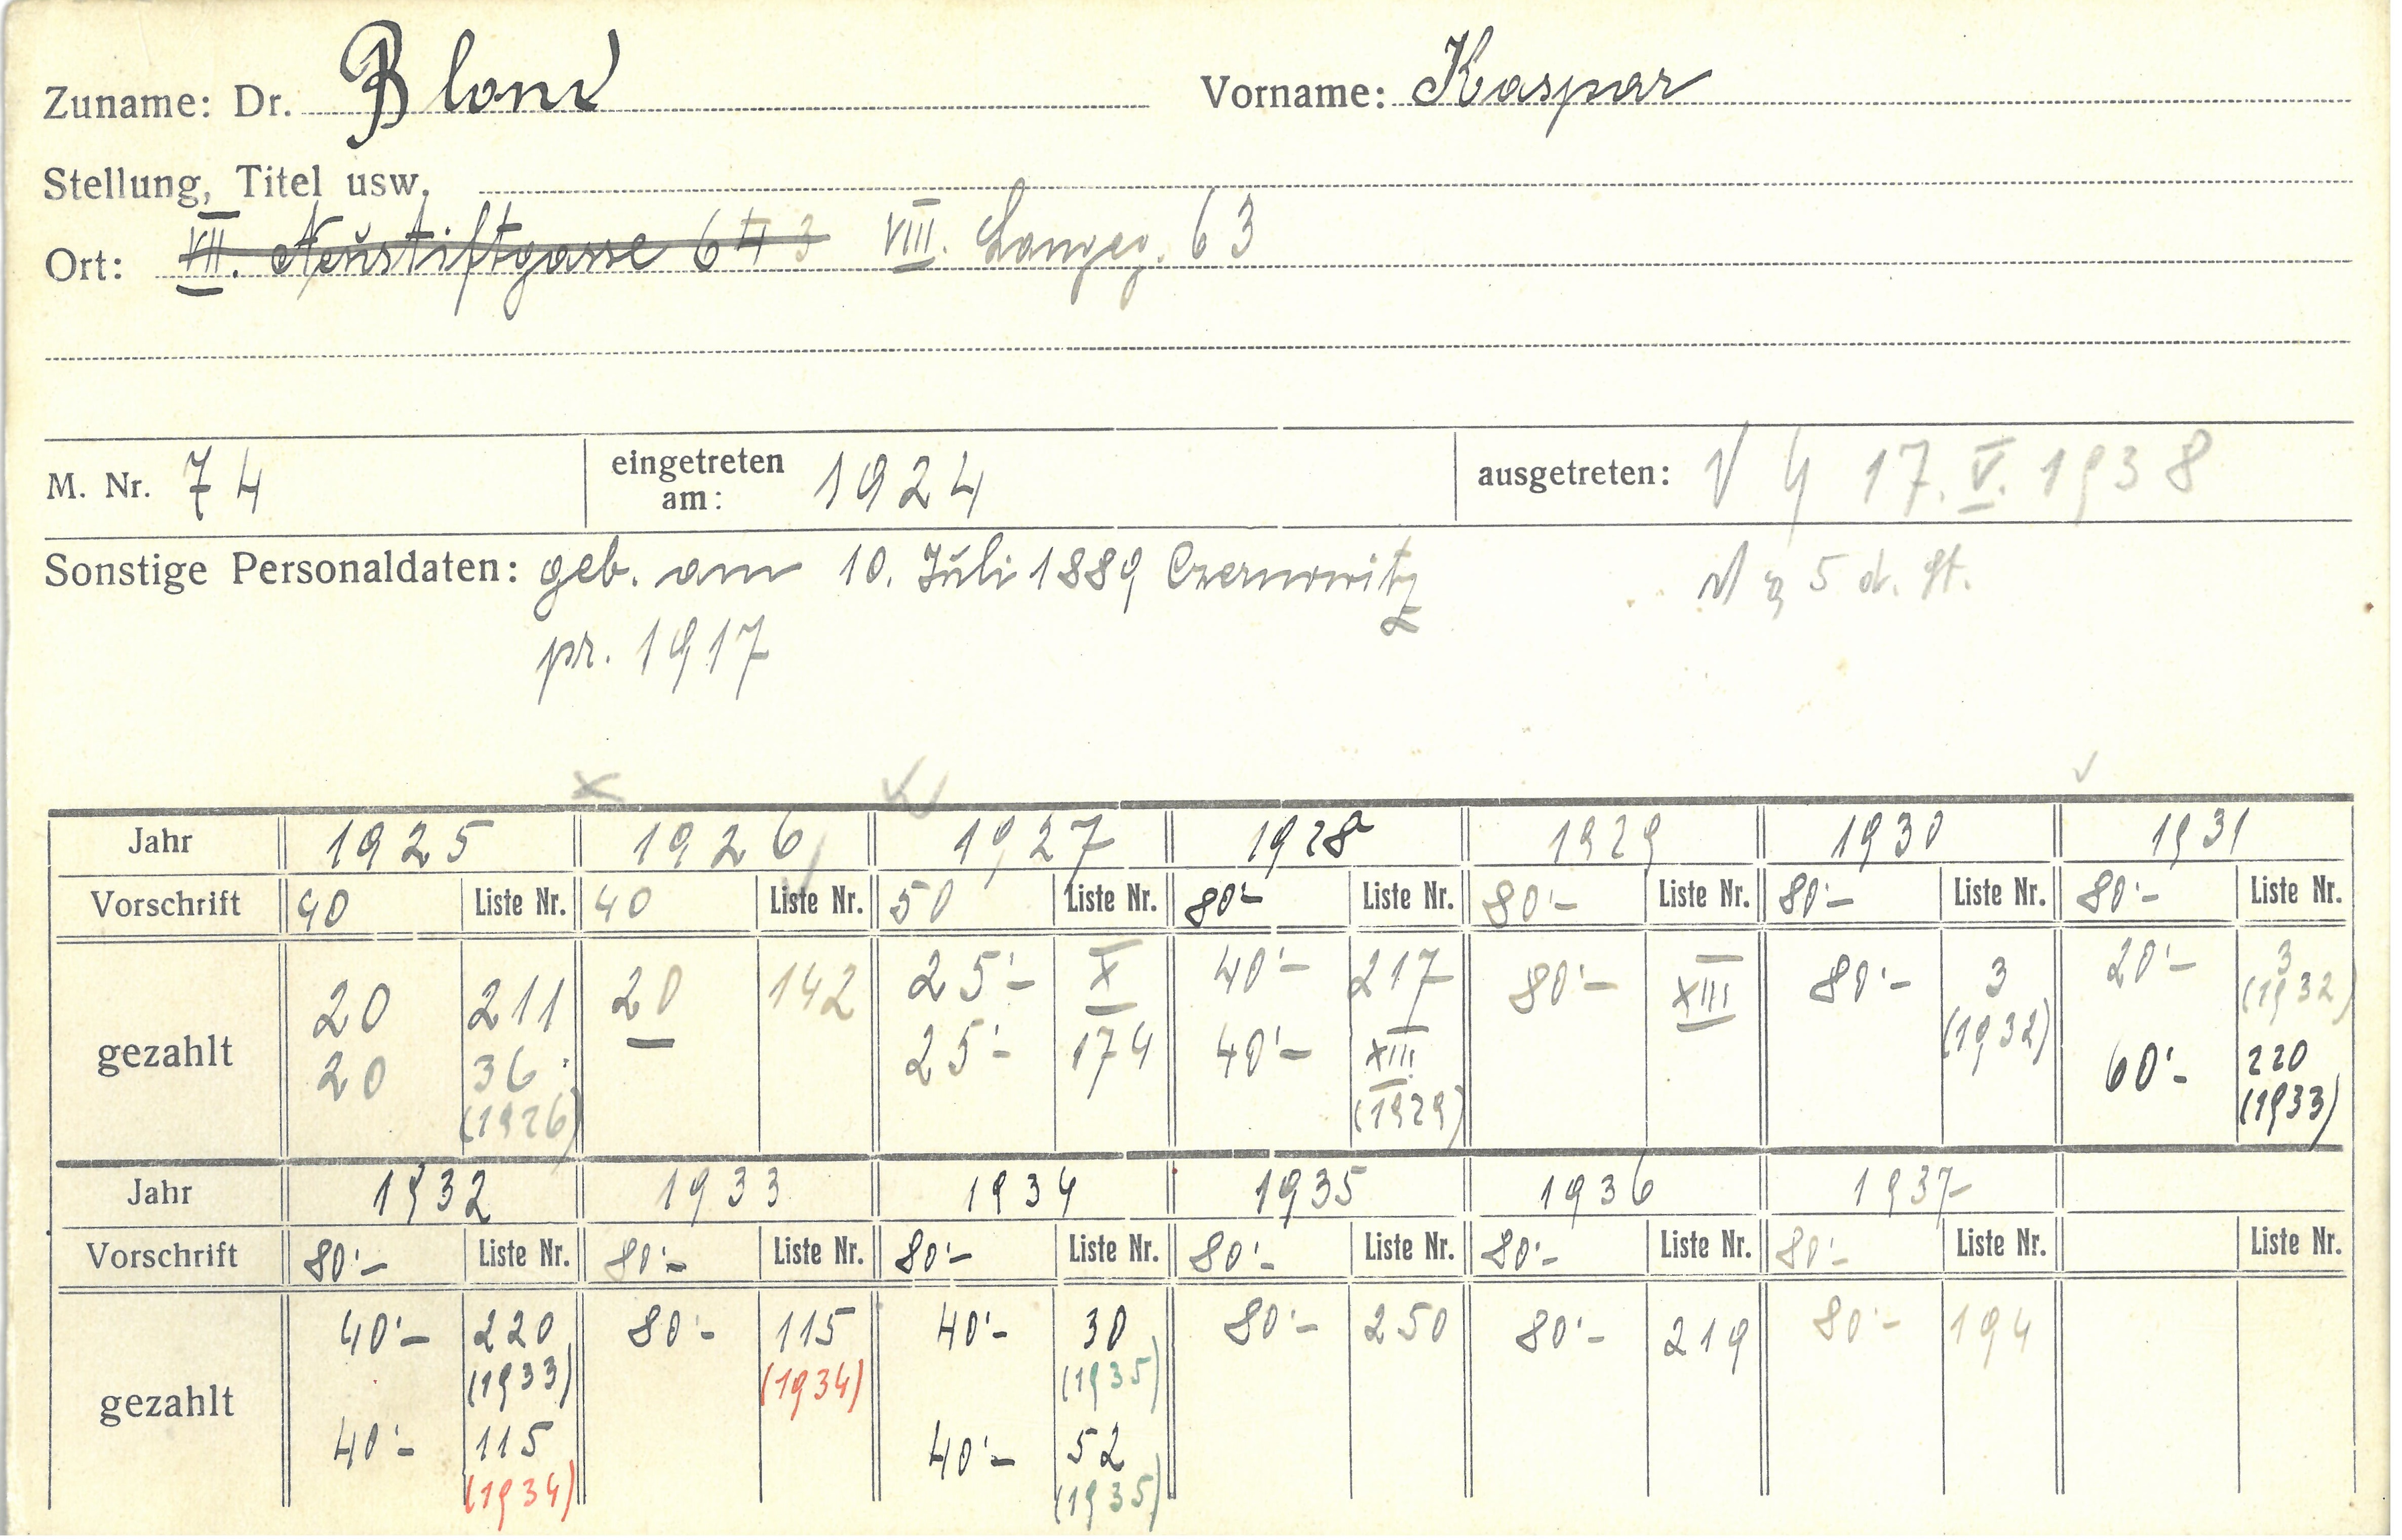 Zuname: Dr. Blond Vorname: Kaspar
Stellung, Titel usw.
Ort: VII. Neustiftgasse 64 3 VIII. Langeg. 63
M. Nr. 74 eingetreten am: 1924 ausgetreten: 17. V. 1938
Sonstige Personaldaten: geb. am 10. Juli 1889 Czernowitz 5 d. St.
pr. 1917
Jahr 1925 1926 1927 1928 1929 1930 1931
Vorschrift 40 Liste Nr. 40 Liste Nr. 50 Liste Nr. 80'- Liste Nr. 80'- Liste Nr. 80'- Liste Nr. 80'- Liste Nr.
gezahlt
20 211 20 142 25'- X 40'- 217 80'- XIII 80'- 3 (1932) 20'- 3 (1932)
20 36 (1926) 25'- 174 40'- XIII (1929) 60'- 220 (1933)
Jahr 1932 1933 1934 1935 1936 1937
Vorschrift 80'- Liste Nr. 80'- Liste Nr. 80'- Liste Nr. 80'- Liste Nr. 80'- Liste Nr. 80'- Liste Nr. Liste Nr.
gezahlt
40'- 220 (1933) 80'- 115 (1934) 40'- 30 (1935) 80'- 250 80'- 219 80'- 194
40'- 115 (1934) 40'- 52 (1935)